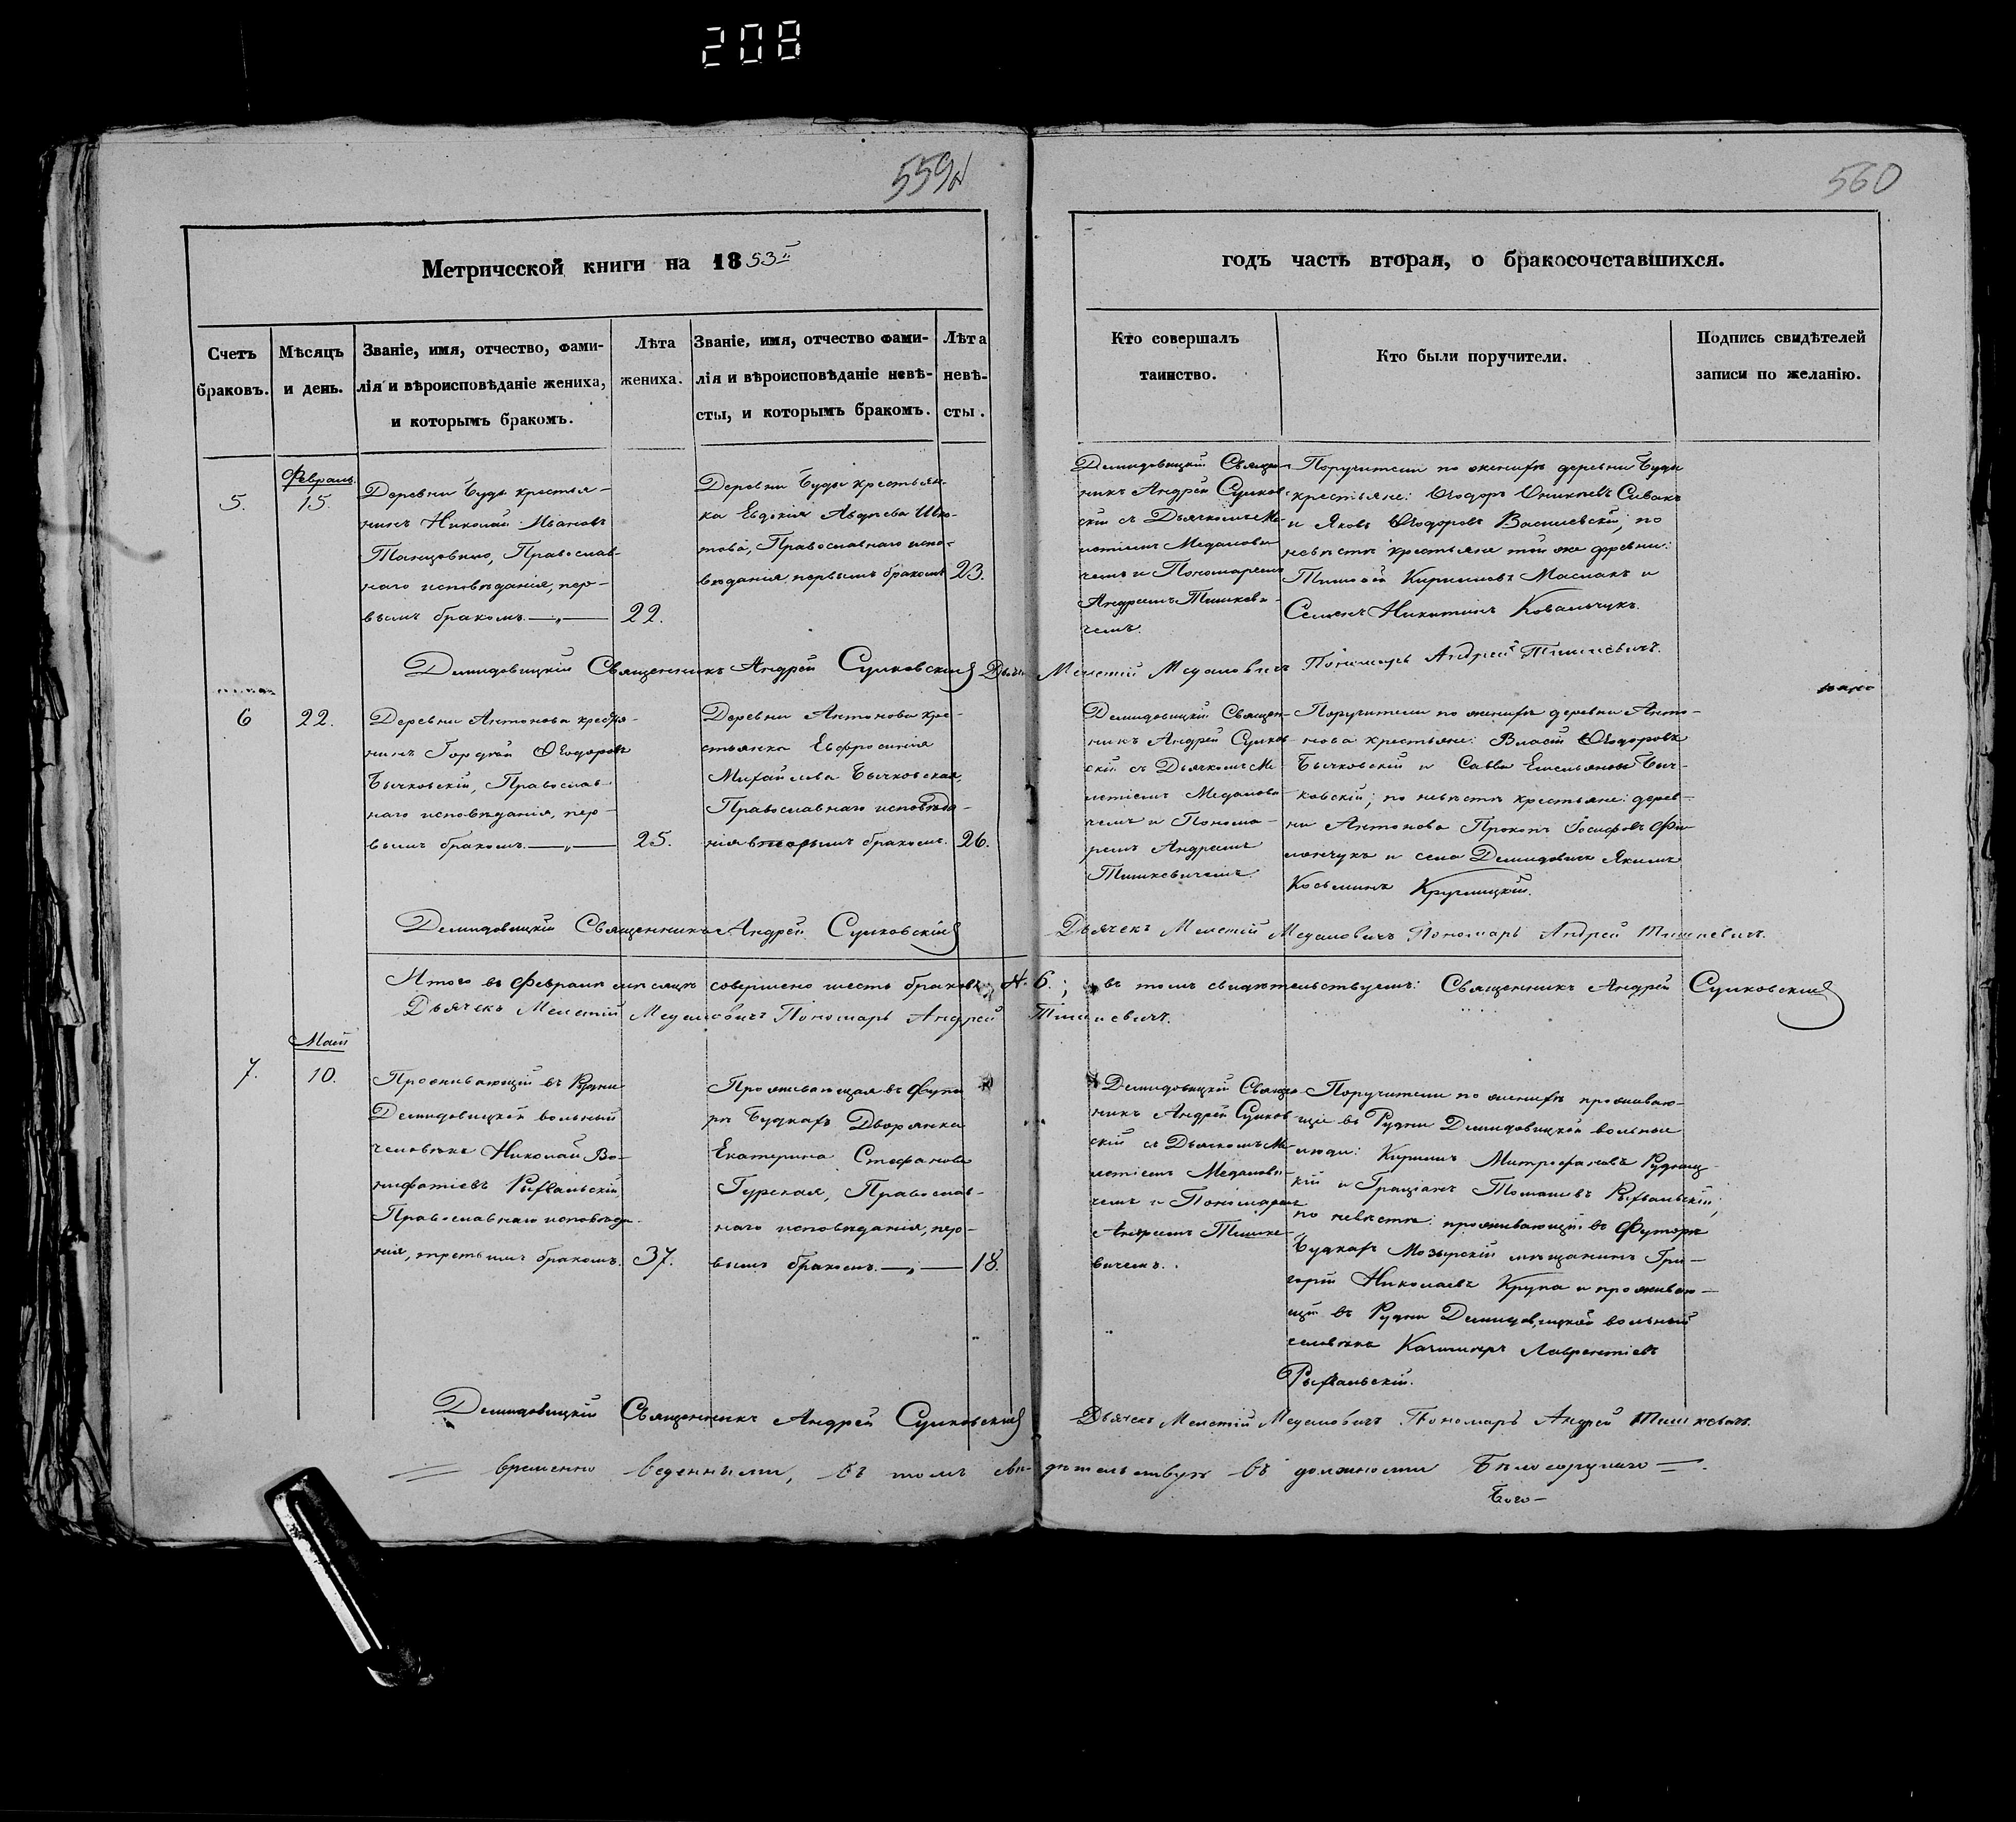 208
559
560
Метрической книги на 1853
годъ часть вторая, о бракосочетавшихся.
Счетъ
браковъ.
Мѣсяцъ
и день.
Званіе, имя, отчество, фами-
лія и вѣроисповѣданіе жениха,
и которымъ бракомъ.
Лѣта
жениха.
Званіе, имя, отчество фами-
лія и вѣроисповѣданіе невѣ-
сты, и которымъ бракомъ.
Лѣта
невѣ-
сты.
Кто совершалъ
таинство.
Кто были поручители.
Подпись свидѣтелей
записи по желанію.
5.
Февраль
15.
Деревни Буды крестья-
нинъ Николай Ивановъ
Православ-
наго исповѣданія, пер-
вымъ бракомъ.
22.
Деревни Буды крестьян-
ка Евдокія Авдѣева
Православнаго испо-
вѣданія, первымъ бракомъ
23.
Демидовицкій Священ-
никъ Андрей Сулков-
скій съ Дьячкомъ Ме-
летіемъ
чемъ и Пономаремъ
Андреемъ Тишкеви-
чемъ.
Поручители по женихѣ деревни Буды
крестьяне: Ѳеодоръ Сивакъ
и Яковъ Ѳеодоровъ Василевскій; по
невѣстѣ крестьяне той же деревни:
Тимофей Кириловъ Маслакъ и
Семенъ Никитинъ Ковальчукъ.
Демидовицкій Священникъ Андрей Сулковскій Мелетій Пономарь Андрей Тишкевичъ.
6
22.
Деревни Антонова кресть-
нинъ Гордѣй Ѳеодоровъ
Бычковскій, Православ-
наго исповѣданія, пер-
вымъ бракомъ.
25.
Деревни Антонова кре-
стьянка Евфросинія
Михайлова Бычковская
Православнаго исповѣда-
нія вторымъ бракомъ.
26.
Демидовицкій Священ-
никъ Андрей Сулков-
скій съ Дьячкомъ Ме-
летіемъ
чемъ и Понома-
ремъ Андреемъ
Тишкевичемъ.
Поручители по женихѣ деревни Анто-
нова крестьяне: Власій Ѳеодоровъ
Бычковскій и Савва Емельяновъ Быч-
ковскій; по невѣстѣ крестьяне: дерев-
ни Антонова Прокопъ Іосифовъ Фи-
лончукъ и села Демидовичъ Якимъ
Козьминъ Круглицкій.
Демидовицкій Священникъ Андрей Сулковскій
Дьячекъ Мелетій Пономарь Андрей Тишкевичъ.
Итого въ Февралѣ мѣсяцѣ совершено шесть браковъ, № 6.; въ томъ свидѣтельствуемъ: Священникъ Андрей Сулковскій
Дьячекъ Мелетій Пономарь Андрей Тишкевичъ.
Май
7.
10.
Проживающій въ Рудни
Демидовицкой вольный
человѣкъ Николай Во-
нифатіевъ
Православнаго исповѣда-
нія, третьимъ бракомъ.
37.
Проживающая въ Футо-
рѣ Будкахъ Дворянка
Екатерина Стефанова
Гурская, Православ-
наго исповѣданія, пер-
вымъ бракомъ.
18.
Демидовицкій Священ-
никъ Андрей Сулков-
скій съ Дьячкомъ Ме-
летіемъ
чемъ и Пономаремъ
Андреемъ Тишке-
вичемъ.
Поручители по женихѣ проживаю-
щіе въ Рудни Демидовицкой вольные
люди: Кирилъ Митрофановъ Рудниц-
кій и Граціанъ Томашевъ
по невѣстѣ: проживающій въ Футорѣ
Будкахъ Мозырскій мѣщанинъ Гри-
горій Николаевъ Крупа и проживаю-
щій въ Рудни Демидовицкой вольный
человѣкъ Казимиръ Лаврентіевъ
Демидовицкій Священникъ Андрей Сулковскій
Дьячекъ Мелетій Пономарь Андрей Тишкевичъ.
въ томъ свидѣтельствую въ должности